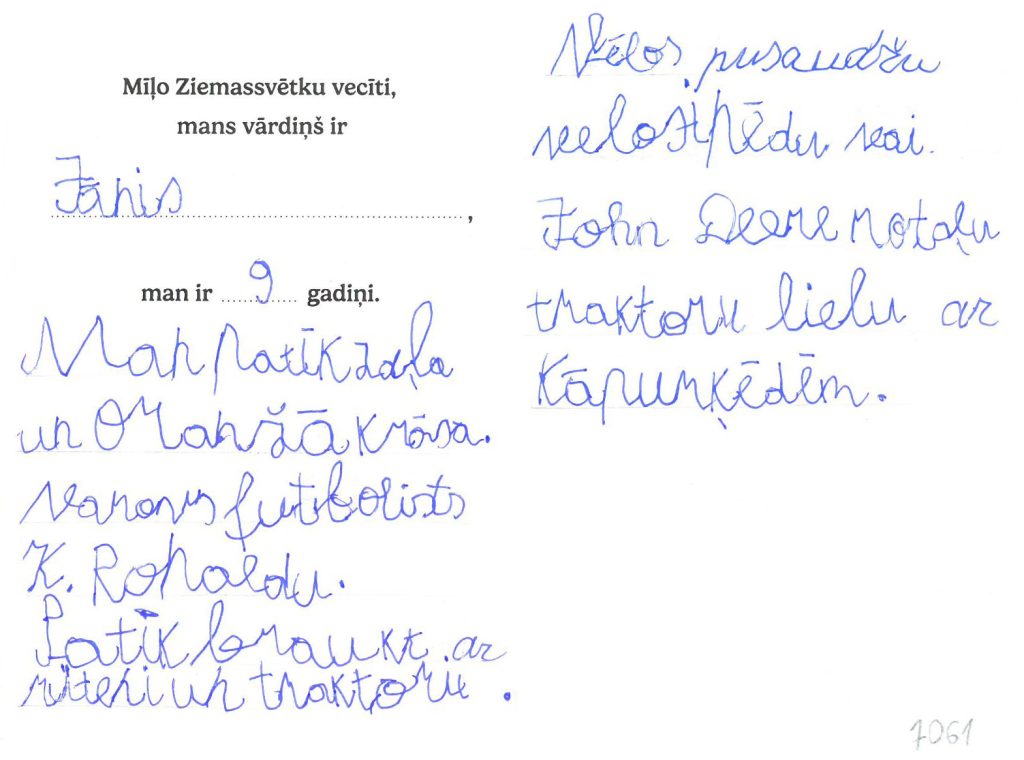 Mīļo Ziemassvētku vecīti,
mans vārdiņš ir
Jānis,
man ir 9 gadiņi.
Man patīk zaļa
un Oranžā krāsa.
Varonis futbolists
K. Ronaldu.
Patīk braukt ar
riteni un traktoru.
Vēlos pusaudžu
velosipēdu vai
John Deere rotaļu
traktoru lielu ar
Kāpurķēdēm.
7061